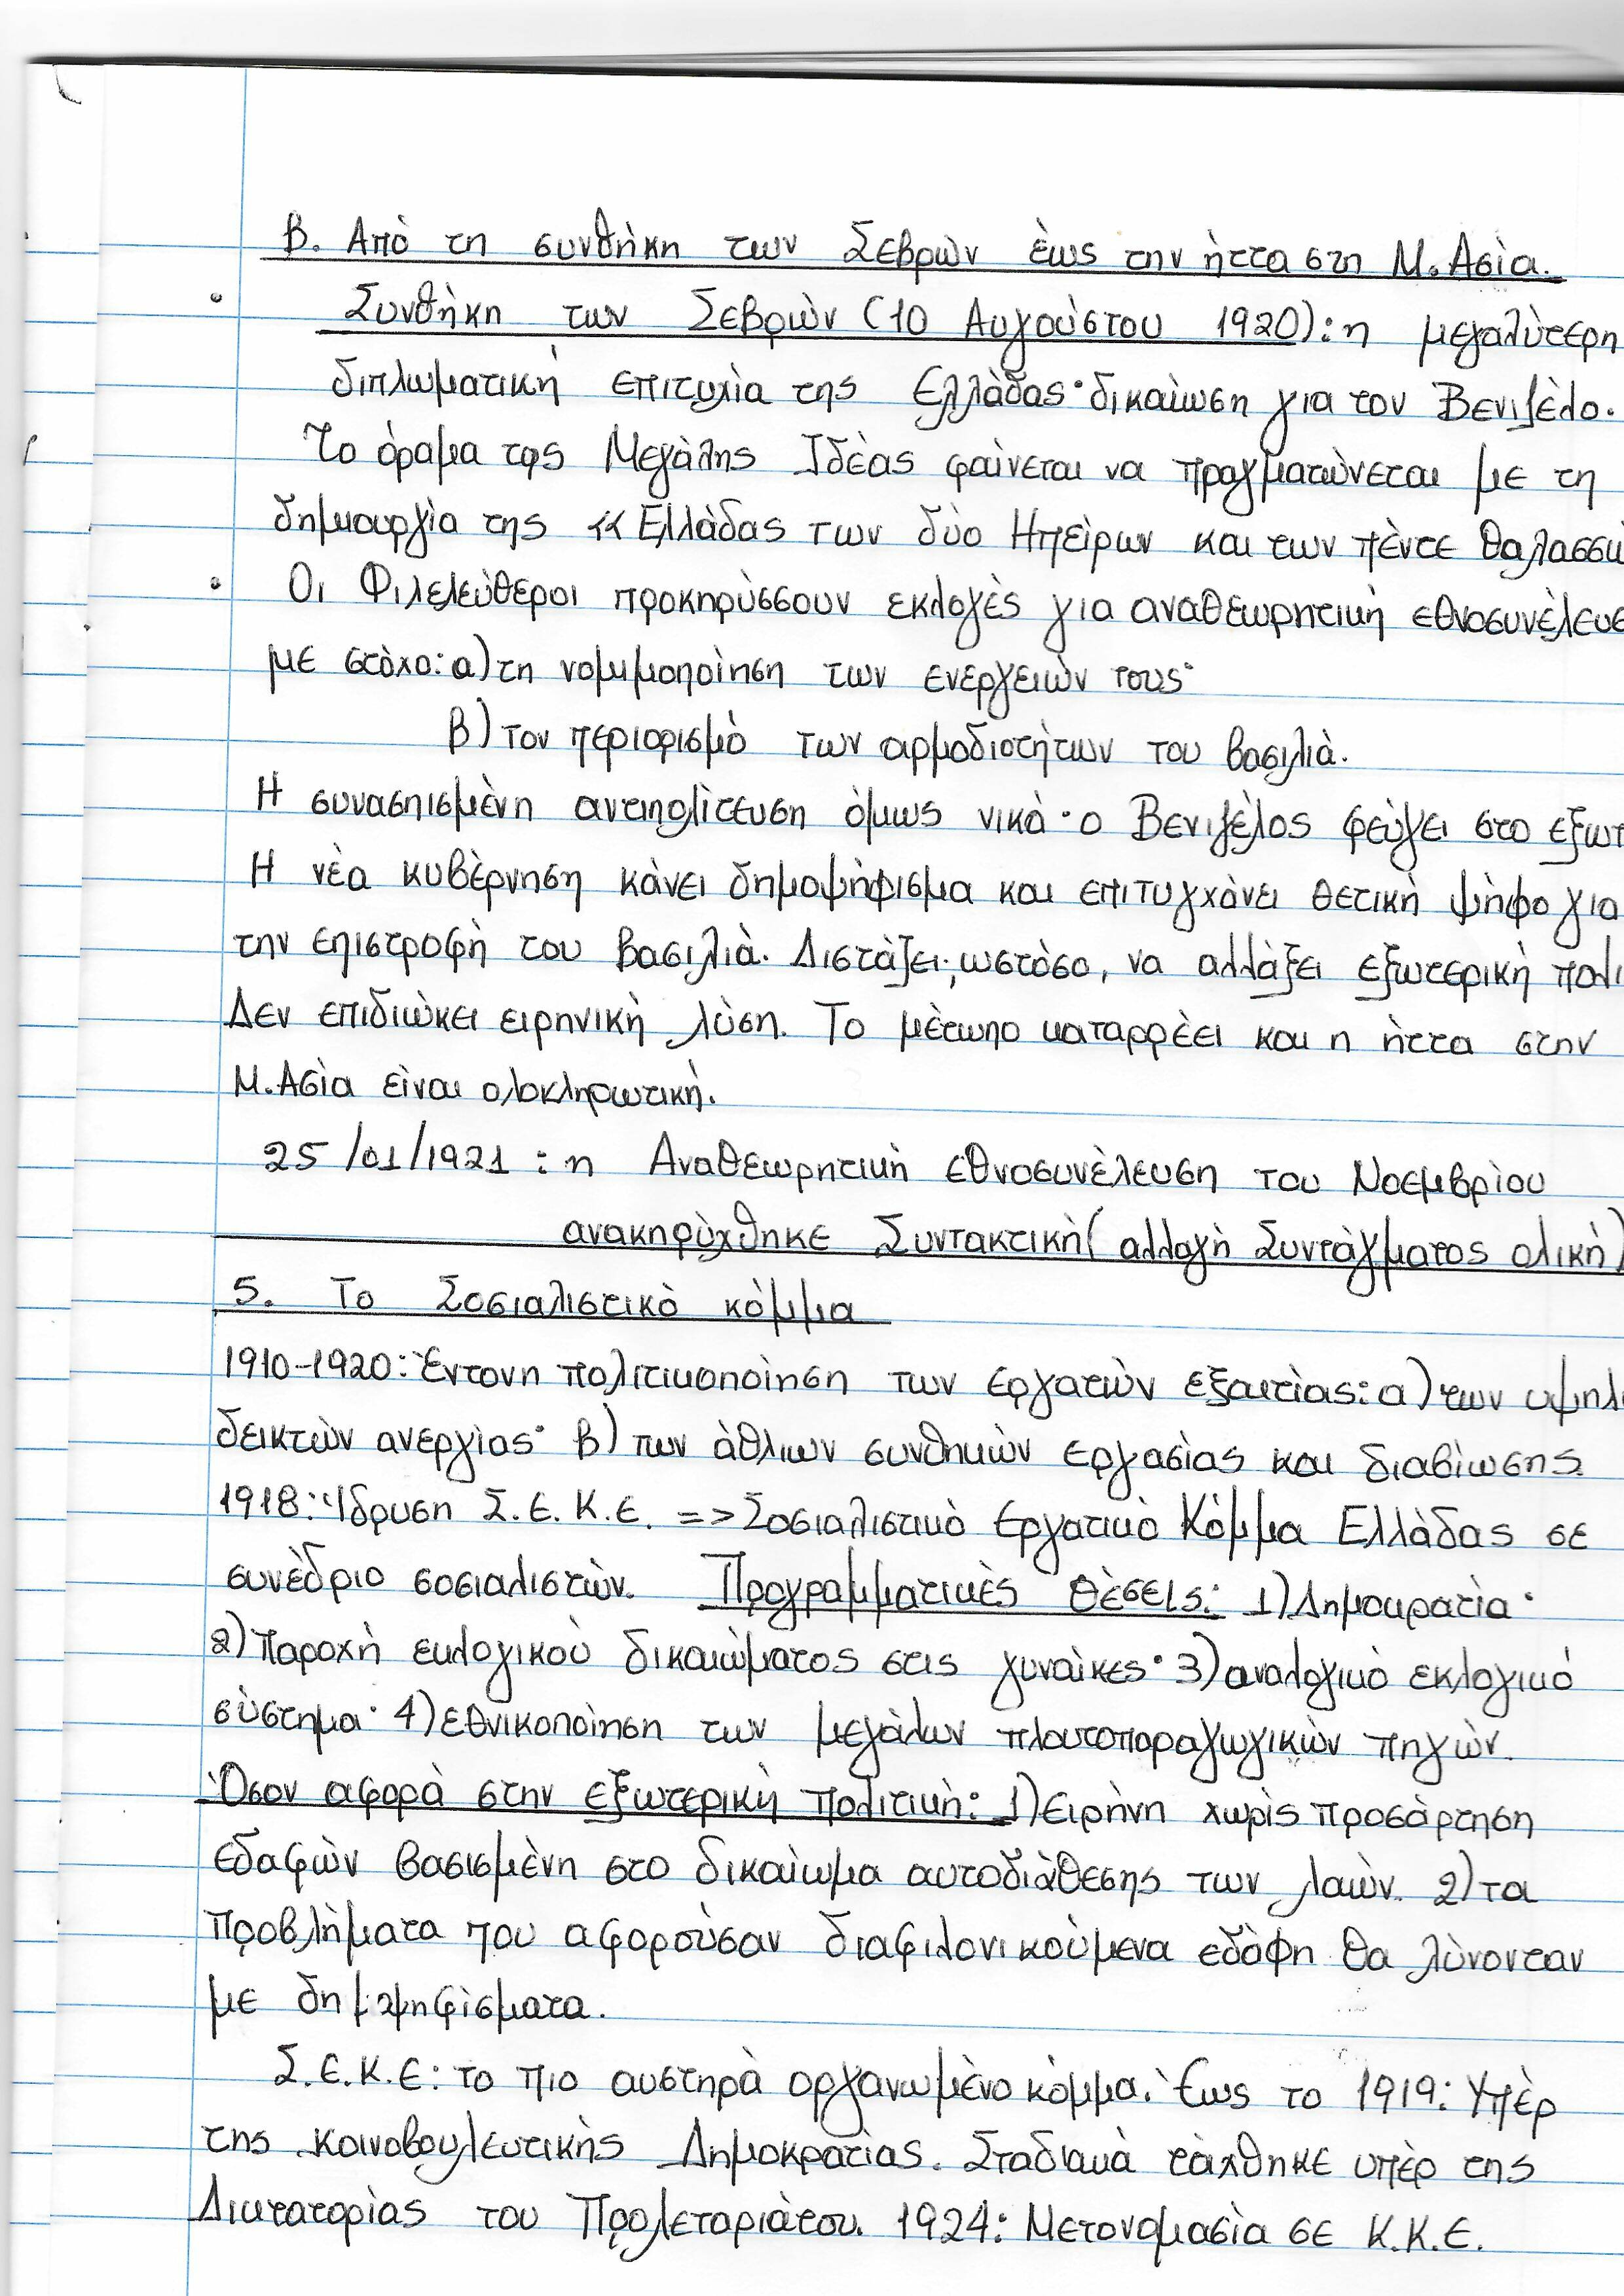 Β. Από τη συνθήκη των Σεβρών έως την ήττα στη Μ. Ασία.
• Συνθήκη των Σεβρών (10 Αυγούστου 1920): η μεγαλύτερη
διπλωματική επιτυχία της Ελλάδας· δικαίωση για τον Βενιζέλο.
Το όραμα της Μεγάλης Ιδέας φαίνεται να πραγματώνεται με τη
δημιουργία της «Ελλάδας των δύο Ηπείρων και των πέντε θαλασσώ
• Οι Φιλελεύθεροι προκηρύσσουν εκλογές για αναθεωρητική εθνοσυνέλευσ
με στόχο: α) τη νομιμοποίηση των ενεργειών τους·
β) τον περιορισμό των αρμοδιοτήτων του βασιλιά.
Η συνασπισμένη αντιπολίτευση όμως νικά· ο Βενιζέλος φεύγει στο εξωτ
Η νέα κυβέρνηση κάνει δημοψήφισμα και επιτυγχάνει θετική ψήφο για
την επιστροφή του βασιλιά. Διστάζει, ωστόσο, να αλλάξει εξωτερική πολι
Δεν επιδιώκει ειρηνική λύση. Το μέτωπο καταρρέει και η ήττα στην
Μ. Ασία είναι ολοκληρωτική.
25/01/1921: η Αναθεωρητική εθνοσυνέλευση του Νοεμβρίου
ανακηρύχθηκε Συντακτική (αλλαγή Συντάγματος ολική)
5. Το Σοσιαλιστικό κόμμα
1910-1920: Έντονη πολιτικοποίηση των εργατών εξαιτίας: α) των υψηλ
δεικτών ανεργίας· β) των άθλιων συνθηκών εργασίας και διαβίωσης.
1918: Ίδρυση Σ.Ε.Κ.Ε. => Σοσιαλιστικό Εργατικό Κόμμα Ελλάδας σε
συνέδριο σοσιαλιστών. Προγραμματικές θέσεις: 1) Δημοκρατία·
2) Παροχή εκλογικού δικαιώματος στις γυναίκες· 3) αναλογικό εκλογικό
σύστημα· 4) εθνικοποίηση των μεγάλων πλουτοπαραγωγικών πηγών.
Όσον αφορά στην εξωτερική πολιτική: 1) ειρήνη χωρίς προσάρτηση
εδαφών βασισμένη στο δικαίωμα αυτοδιάθεσης των λαών. 2) τα
προβλήματα που αφορούσαν διαφιλονικούμενα εδάφη θα λύνονταν
με δημοψηφίσματα.
Σ.Ε.Κ.Ε: το πιο αυστηρά οργανωμένο κόμμα. Έως το 1919: Υπέρ
της κοινοβουλευτικής Δημοκρατίας. Σταδιακά τάχθηκε υπέρ της
Δικτατορίας του Προλεταριάτου. 1924: Μετονομασία σε Κ.Κ.Ε.